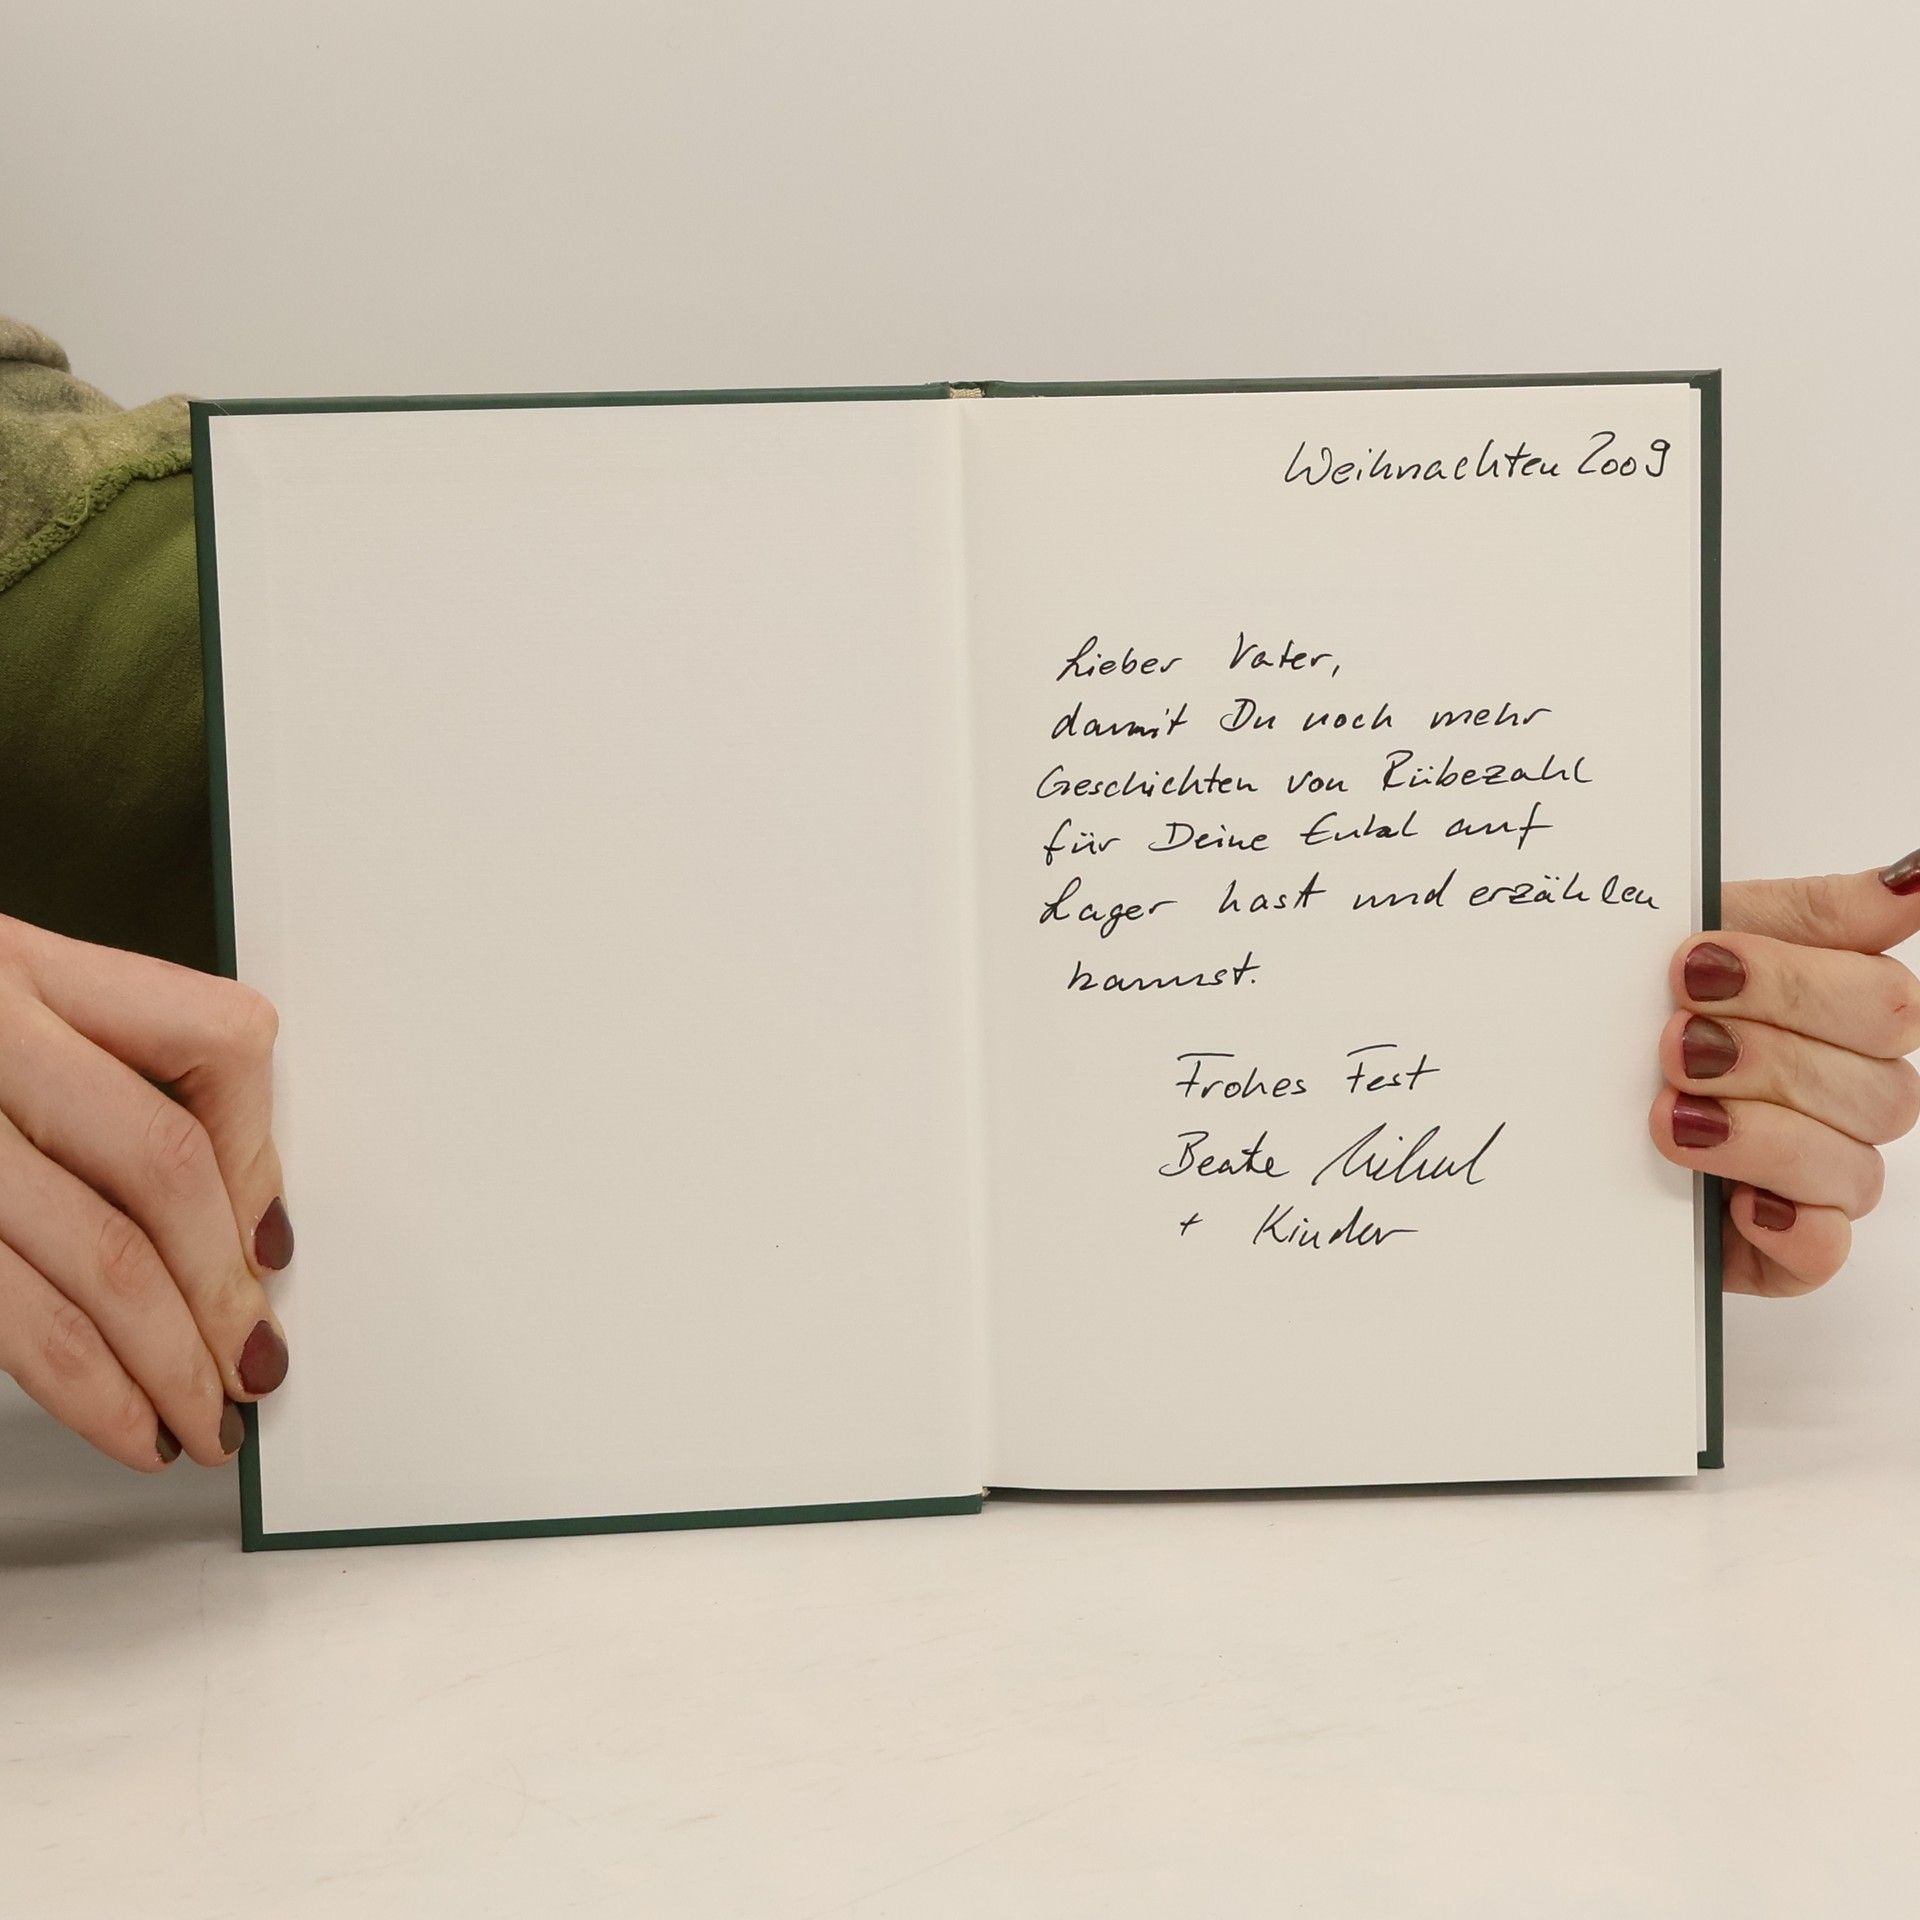 Weihnachten 2009
Lieber Vater,
damit Du noch mehr
Geschichten von Rübezahl
für Deine Enkel auf
Lager hast und erzählen
kannst.
Frohes Fest
Beate
+ Kinder